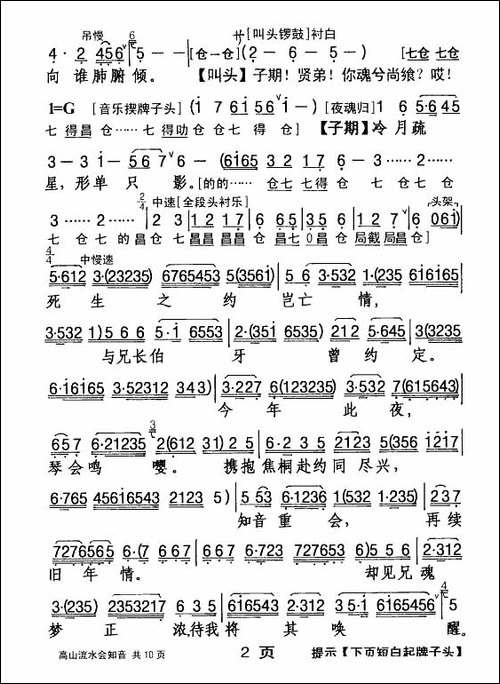 吊慢 6 サ[叫头锣鼓]衬白
4· 2 456ˇ 5 - - [仓一仓](2 - 6 - 5) [七仓 七仓
向 谁肺腑倾。 【叫头】子期！贤弟！你魂兮尚飨？哎！
1=G [音乐揳牌子头](i 7 6 i 5 6ˇ i -)[夜魂归]1 6 5·6 4 5
七得昌 仓……七得叻 仓 仓 七 得 仓] 【子期】冷 月疏
3 - 3 i - 5 6 7ˇ 6 - (6165 3 2 1217 6 - 3 …… 2 ……
星，形单 只 影。[的的…… 仓 七 七得 仓 七仓 七仓
2/4 中速[全段头衬乐] 头架
3 …… 2 …… 2 3 1217 6165 3561 5 6 1 2 7ˇ 6 061)
七 仓 七 的昌仓 七昌昌昌昌 仓 昌七0昌 仓 局截局昌 仓]
4/4 中慢速
5·612 3·(23235) 6765453 5(3561) 5 6 3·532 1·(235 616165
死 生 之 约 岂亡 情，
3·532 1)5 6 6 5·i 6553 2·(351 6535) 212 5·645 3(3235
与兄长伯 牙 曾 约 定。
6·16165 3·52312 343) 3·227 6(123235) 3·532 7(615643)
今 年 此 夜，
657 6·21235 2(612 31) 2 5 6·2 3 5 2123 5 356 i217
琴会鸣 嘤。 携抱焦桐赴约同 尽兴，
6·765 45616543 2123 5) 5 53 6·1236 1(532 1·235) 237
知音重 会， 再续
7276565 6·(7 667 667 667 6·723 7276 5635 6)5 5 6 2·312
旧年 情。 却见兄魂
3·(235) 2353217 6 3 5 6165 4 5 3 2·312 3·i 6165456ˇ 4 5
梦 正 浓待我将 其 唤 醒。
高山流水会知音 共10页 2 页 提示【下页短白起牌子头】